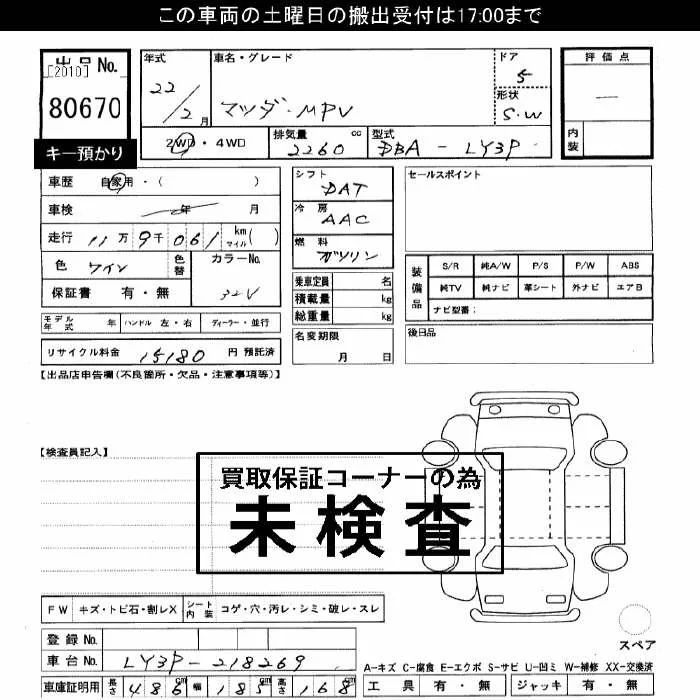 この車両の土曜日の搬出受付は17:00まで
出品No.
[2010]
80670
キー預かり
年式
22/2月
車名・グレード
マツダ・MPV
ドア
5
形状
S.W
2WD・4WD
排気量 2260 cc
型式 DBA-LY3P
評価点
―
内装
車歴 自家用・( )
車検 年 月
走行 11万9千061 km マイル( )
色 ワイン
色替
カラーNo.
32V
保証書 有・無
シフト
DAT
冷房
AAC
燃料
ガソリン
乗車定員 名
積載量 kg
総重量 kg
名変期限
月 日
セールスポイント
装備品
S/R 純A/W P/S P/W ABS
純TV 純ナビ 革シート 外ナビ エアB
ナビ型番:
後日品
モデル年式 年 ハンドル 左・右 ディーラー・並行
リサイクル料金 15180 円 預託済
【出品店申告欄(不良箇所・欠品・注意事項等)】
【検査員記入】
買取保証コーナーの為
未検査
FW キズ・トビ石・割レX シート内装 コゲ・穴・汚レ・シミ・破レ・スレ
登録No.
車台No. LY3P-218269
車庫証明用 長さ 486cm 幅 185cm 高さ 168cm
スペア
A-キズ C-腐食 E-エクボ S-サビ U-凹ミ W-補修 XX-交換済
工具 有・無 ジャッキ 有・無